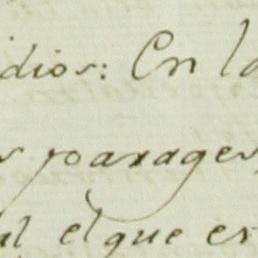 idios: En la
s parages
al el que es